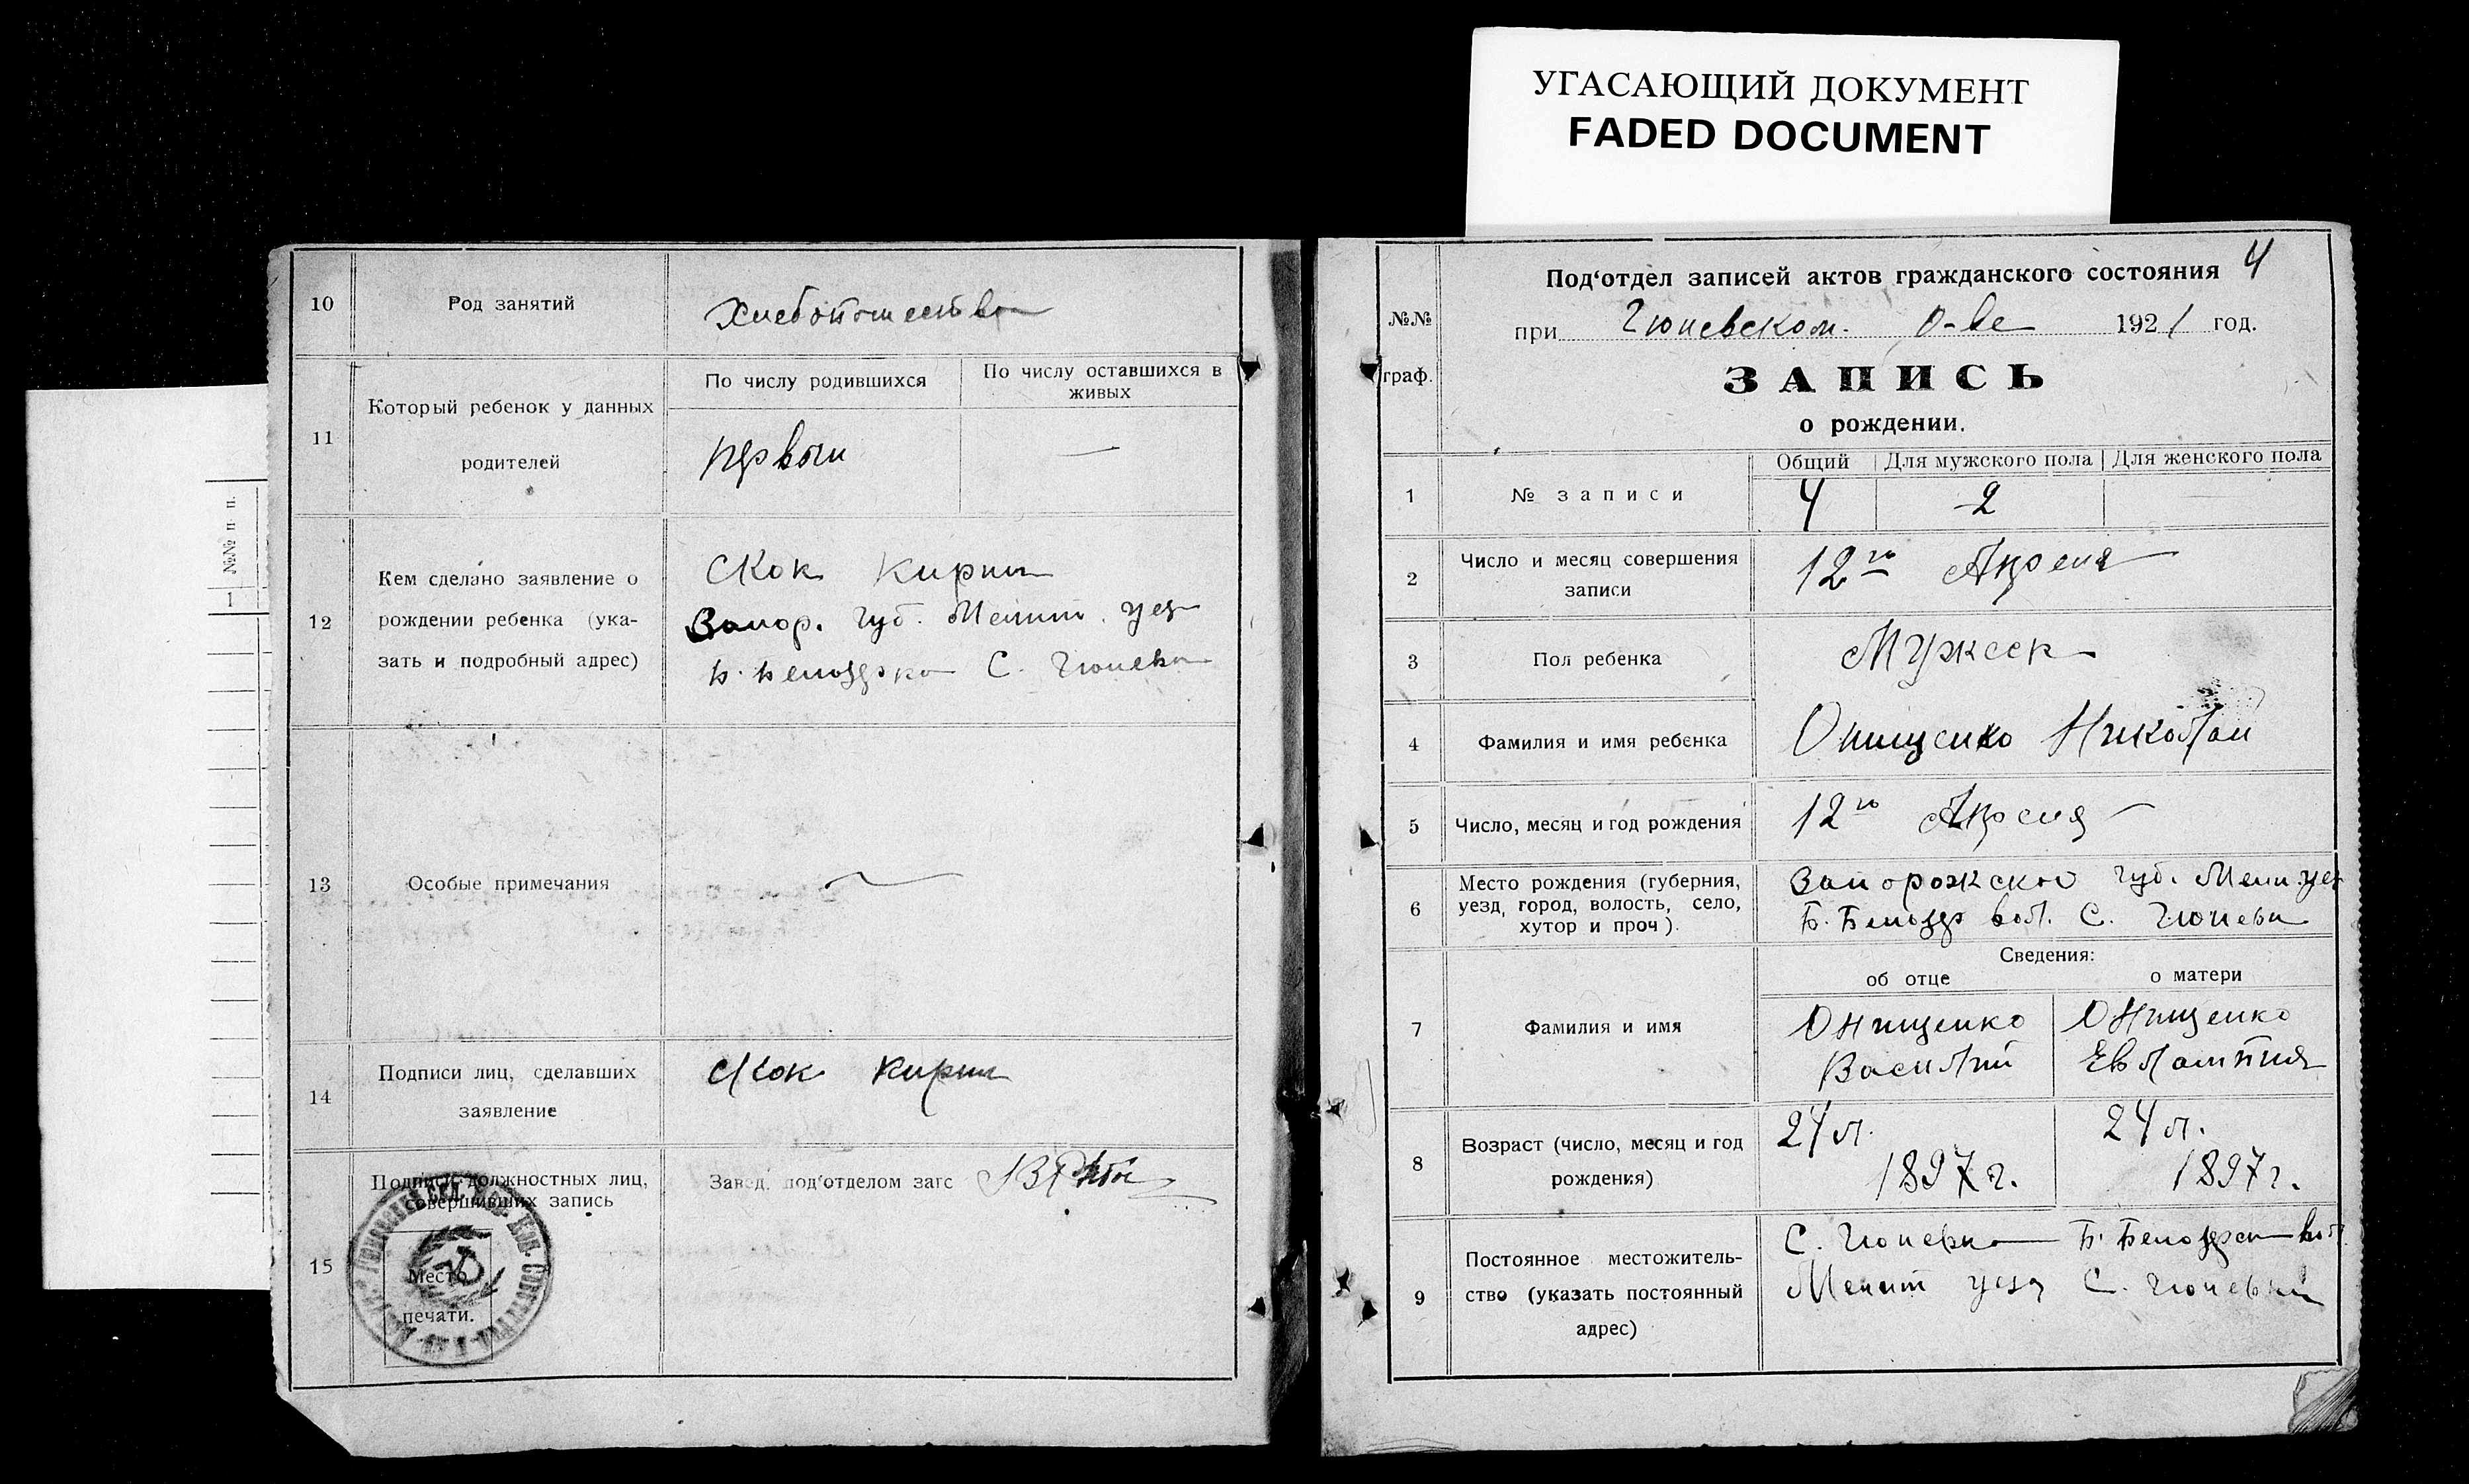 УГАСАЮЩИЙ ДОКУМЕНТ
FADED DOCUMENT
№№ п п.
1
10
Род занятий
Хлебопашество
11
Который ребенок у данных
родителей
По числу родившихся
По числу оставшихся в
живых
первый
—
12
Кем сделано заявление о
рождении ребенка (ука-
зать и подробный адрес)
Скок Кирил
Запор. губ. Мелит. уез
Б. Белозерка С. Гюневка
13
Особые примечания
14
Подписи лиц, сделавших
заявление
Скок Кирил
15
Подписи должностных лиц,
совершивших запись
Завед. под'отделом загс
Место
печати.
4
№№
граф.
Под'отдел записей актов гражданского состояния
при Гюневском. о-ве 1921 год.
ЗАПИСЬ
о рождении.
1
№ записи
Общий
Для мужского пола
Для женского пола
4
2
2
Число и месяц совершения
записи
12го Апреля
3
Пол ребенка
Мужеск
4
Фамилия и имя ребенка
Онищенко Николай
5
Число, месяц и год рождения
12го Апреля
6
Место рождения (губерния,
уезд, город, волость, село,
хутор и проч).
Запорожско губ. Мели. уез
Б. Белозер вол. С. Гюневк
Сведения:
об отце
о матери
7
Фамилия и имя
Онищенко
Василий
Онищенко
Евлампия
8
Возраст (число, месяц и год
рождения)
24 л.
1897 г.
24 л.
1897 г.
9
Постоянное местожитель-
ство (указать постоянный
адрес)
С. Гюневка Б. Белозерск вол.
Мелит уезд С. Гюневки